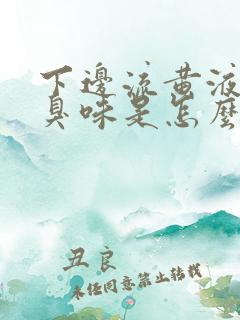 下邊流黃液
臭味是怎麼
丑良
未经同意禁止转载